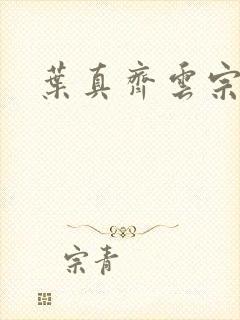 葉真齊雲宗
宗青